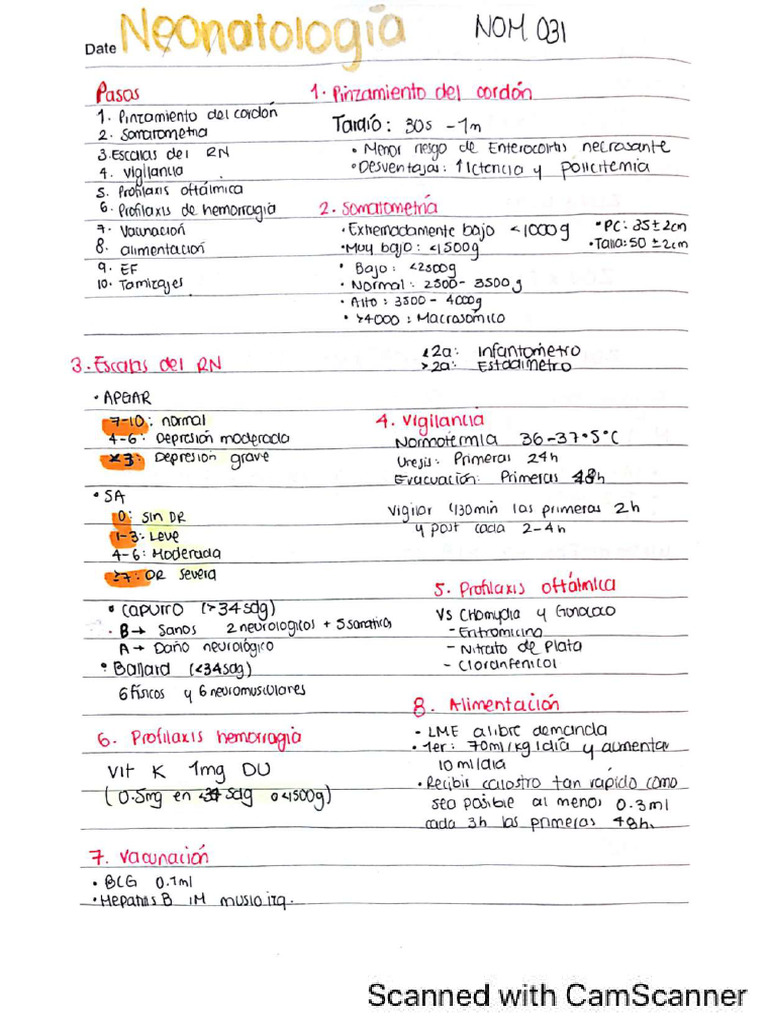 Date Neonatología NOM 031
Pasos
1. Pinzamiento del cordón
2. Somatometria
3. Escalas del RN
4. Vigilancia
5. Profilaxis oftálmica
6. Profilaxis de hemorragia
7. Vacunación
8. alimentación
9. EF
10. Tamizajes
1. Pinzamiento del cordón
Tardío: 30s - 1m
• Menor riesgo de Enterocolitis necrosante
• Desventajas: Ictericia y policitemia
2. Somatometría
• Extremadamente bajo <1000g
• Muy bajo: <1500g
• Bajo: <2500g
• Normal: 2500 - 3500g
• Alto: 3500 - 4000g
• >4000: Macrosómico
• PC: 35 ± 2cm
• Talla: 50 ± 2cm
<2a: Infantómetro
>2a: Estadímetro
3. Escalas del RN
• APGAR
7-10: normal
4-6: Depresión moderada
≤3: Depresión grave
• SA
0: Sin DR
1-3: Leve
4-6: Moderada
≥7: DR severa
• Capurro (>34sdg)
B→ Sanos 2 neurologicos + 5 somáticos
A→ Daño neurológico
• Ballard (<34sdg)
6 físicos y 6 neuromusculares
4. Vigilancia
Normotermia 36-37.5°C
Uresis: Primeras 24h
Evacuación: Primeras 48h
Vigilar c/30min las primeras 2h
y post cada 2-4h
5. Profilaxis oftálmica
VS Chlamydia y Gonococo
- Eritromicina
- Nitrato de Plata
- Cloranfenicol
6. Profilaxis hemorragia
Vit K 1mg DU
(0.5mg en <34 sdg o <1500g)
7. Vacunación
• BCG 0.1ml
• Hepatitis B IM muslo izq.
8. Alimentación
- LME a libre demanda
• 1er: 70ml/kg/día y aumentar
10 ml/dia
• Recibir calostro tan rápido como
sea posible al menos 0.3ml
cada 3h las primeras 48h.
Scanned with CamScanner